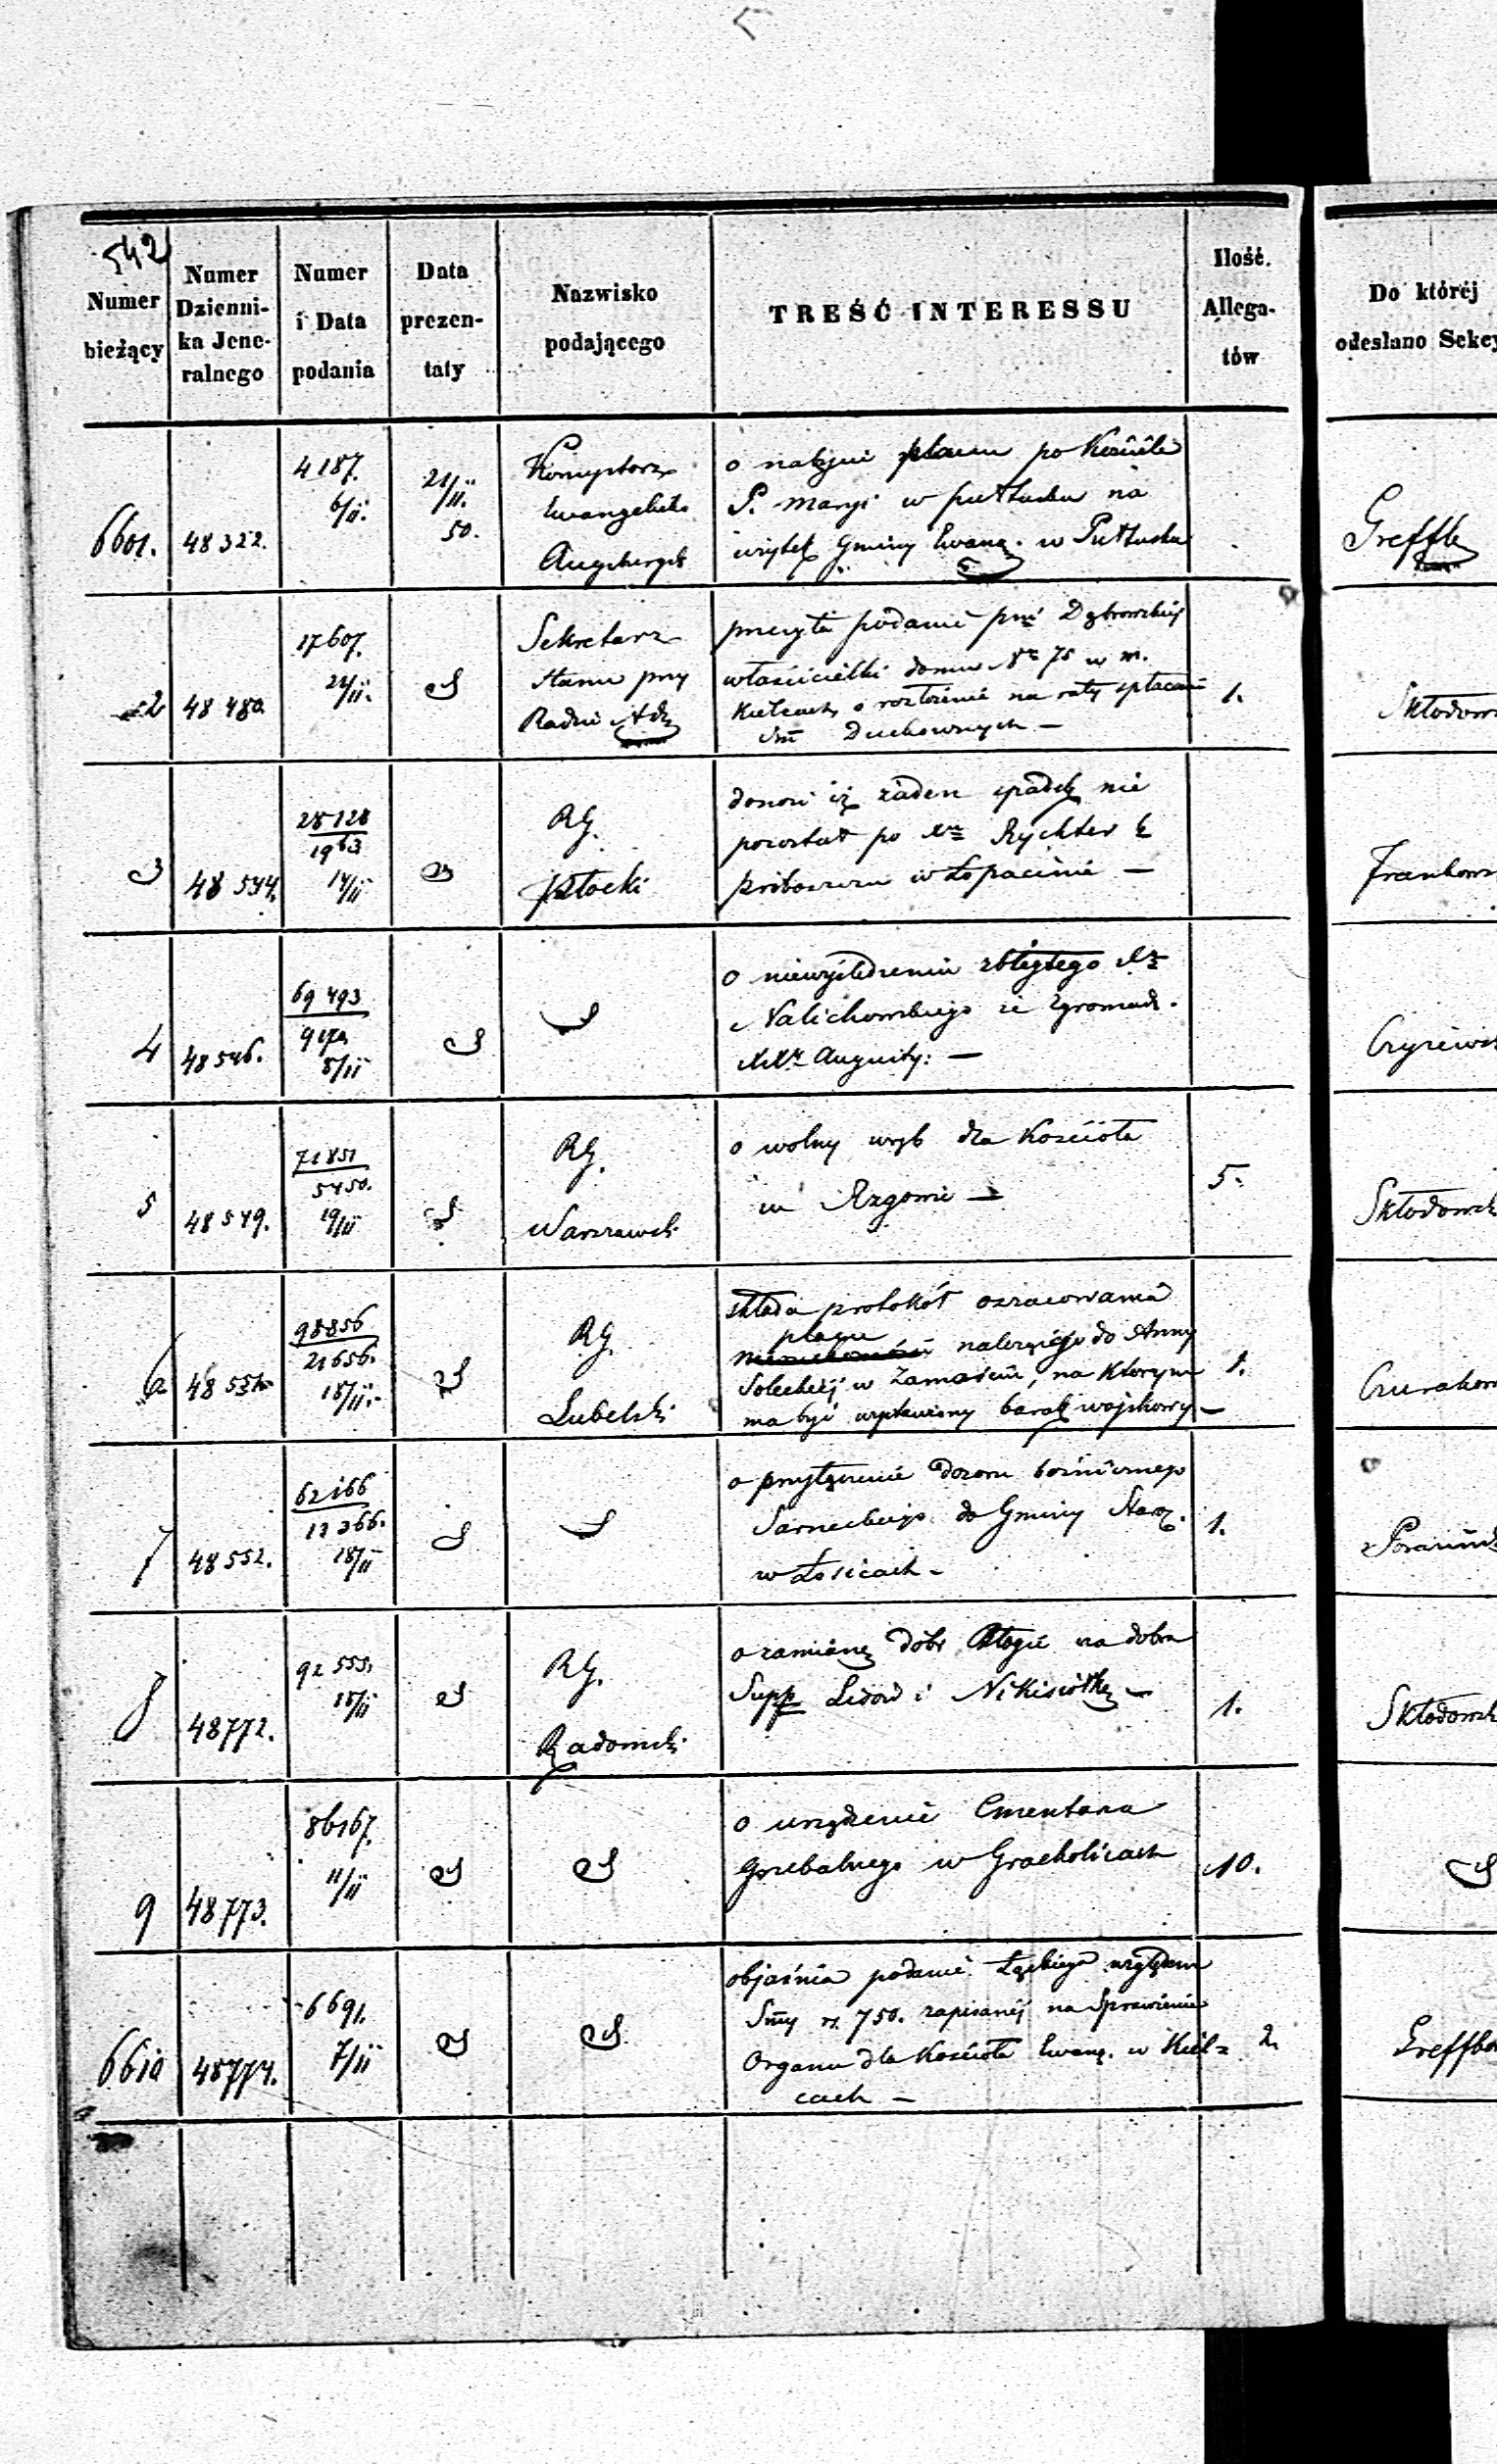 542
Numer bieżący
Numer Dzienni-ka Jene-ralnego
Numer i Data podania
Data prezen-taty
Nazwisko podającego
TREŚĆ INTERESSU
Ilość. Allega-tów
Do którėj odesłano Sekcy
6601. 48322. 4187. 6/II. 21/II. 50.
Konsystorz
Ewangelicko
Augsburgsk
o najęciu placu po Kościele
P. Maryi w Pułtusku na
użytek Gminy Ewang. w Pułtusku
Greffle
2 48480 17607. 21/II.
Sekretarz
Stanu przy
Radzie Adz
przesyła podanie pni Dąbrowskiej
właścicielki domu Nr 75 w m.
Kielcach, o rozłożenie na raty spłacanie
Sm Duchownych —
1.
Skłodows
3 48544. 28128 1963 14/II
RG.
Płocki
donosi iż żaden spadek nie
pozostał po Xu Rychter
Proboszczu w Łopacinie —
Frankows
4 48546. 69493 8/II
o niewyśledzeniu zbiegłego Xa
Nalichowskiego ze Zgromad.
XXy Augusty: —
5 48549. 71851 5450. 19/II
RG.
Warszawski
o wolny wrąb dla Kościoła
w Rzgowie —
5.
Skłodowsk
6 98856 21656. 18/II.
RG.
Lubelski
składa protokół oszacowania
placu
należącego do Anny
Soleckiej w Zamościu, na którym
ma być wystawiony barak wojskowy —
1.
7 48552. 62166 12366. 18/II
o przyłączenie dozoru bożniczego
Sarneckiego do Gminy Staroz.
w Łosicach —
1.
8 48772. 92555, 18/II
RG.
Radomski
o zamianę dóbr na dobra
Supp Lisów i
1.
Skłodowsk
9 48773. 86167. 11/II
o urządzenie Cmentarza
Grzebalnego w Grocholicach
10.
6610 48774. 6691. 7/II
objaśnia podanie Łąckiego względem
Smy rs. 750. zapisanej na Sprawienie
Organu dla Kościoła Ewang. w Kiel-
cach —
2.
Greffle